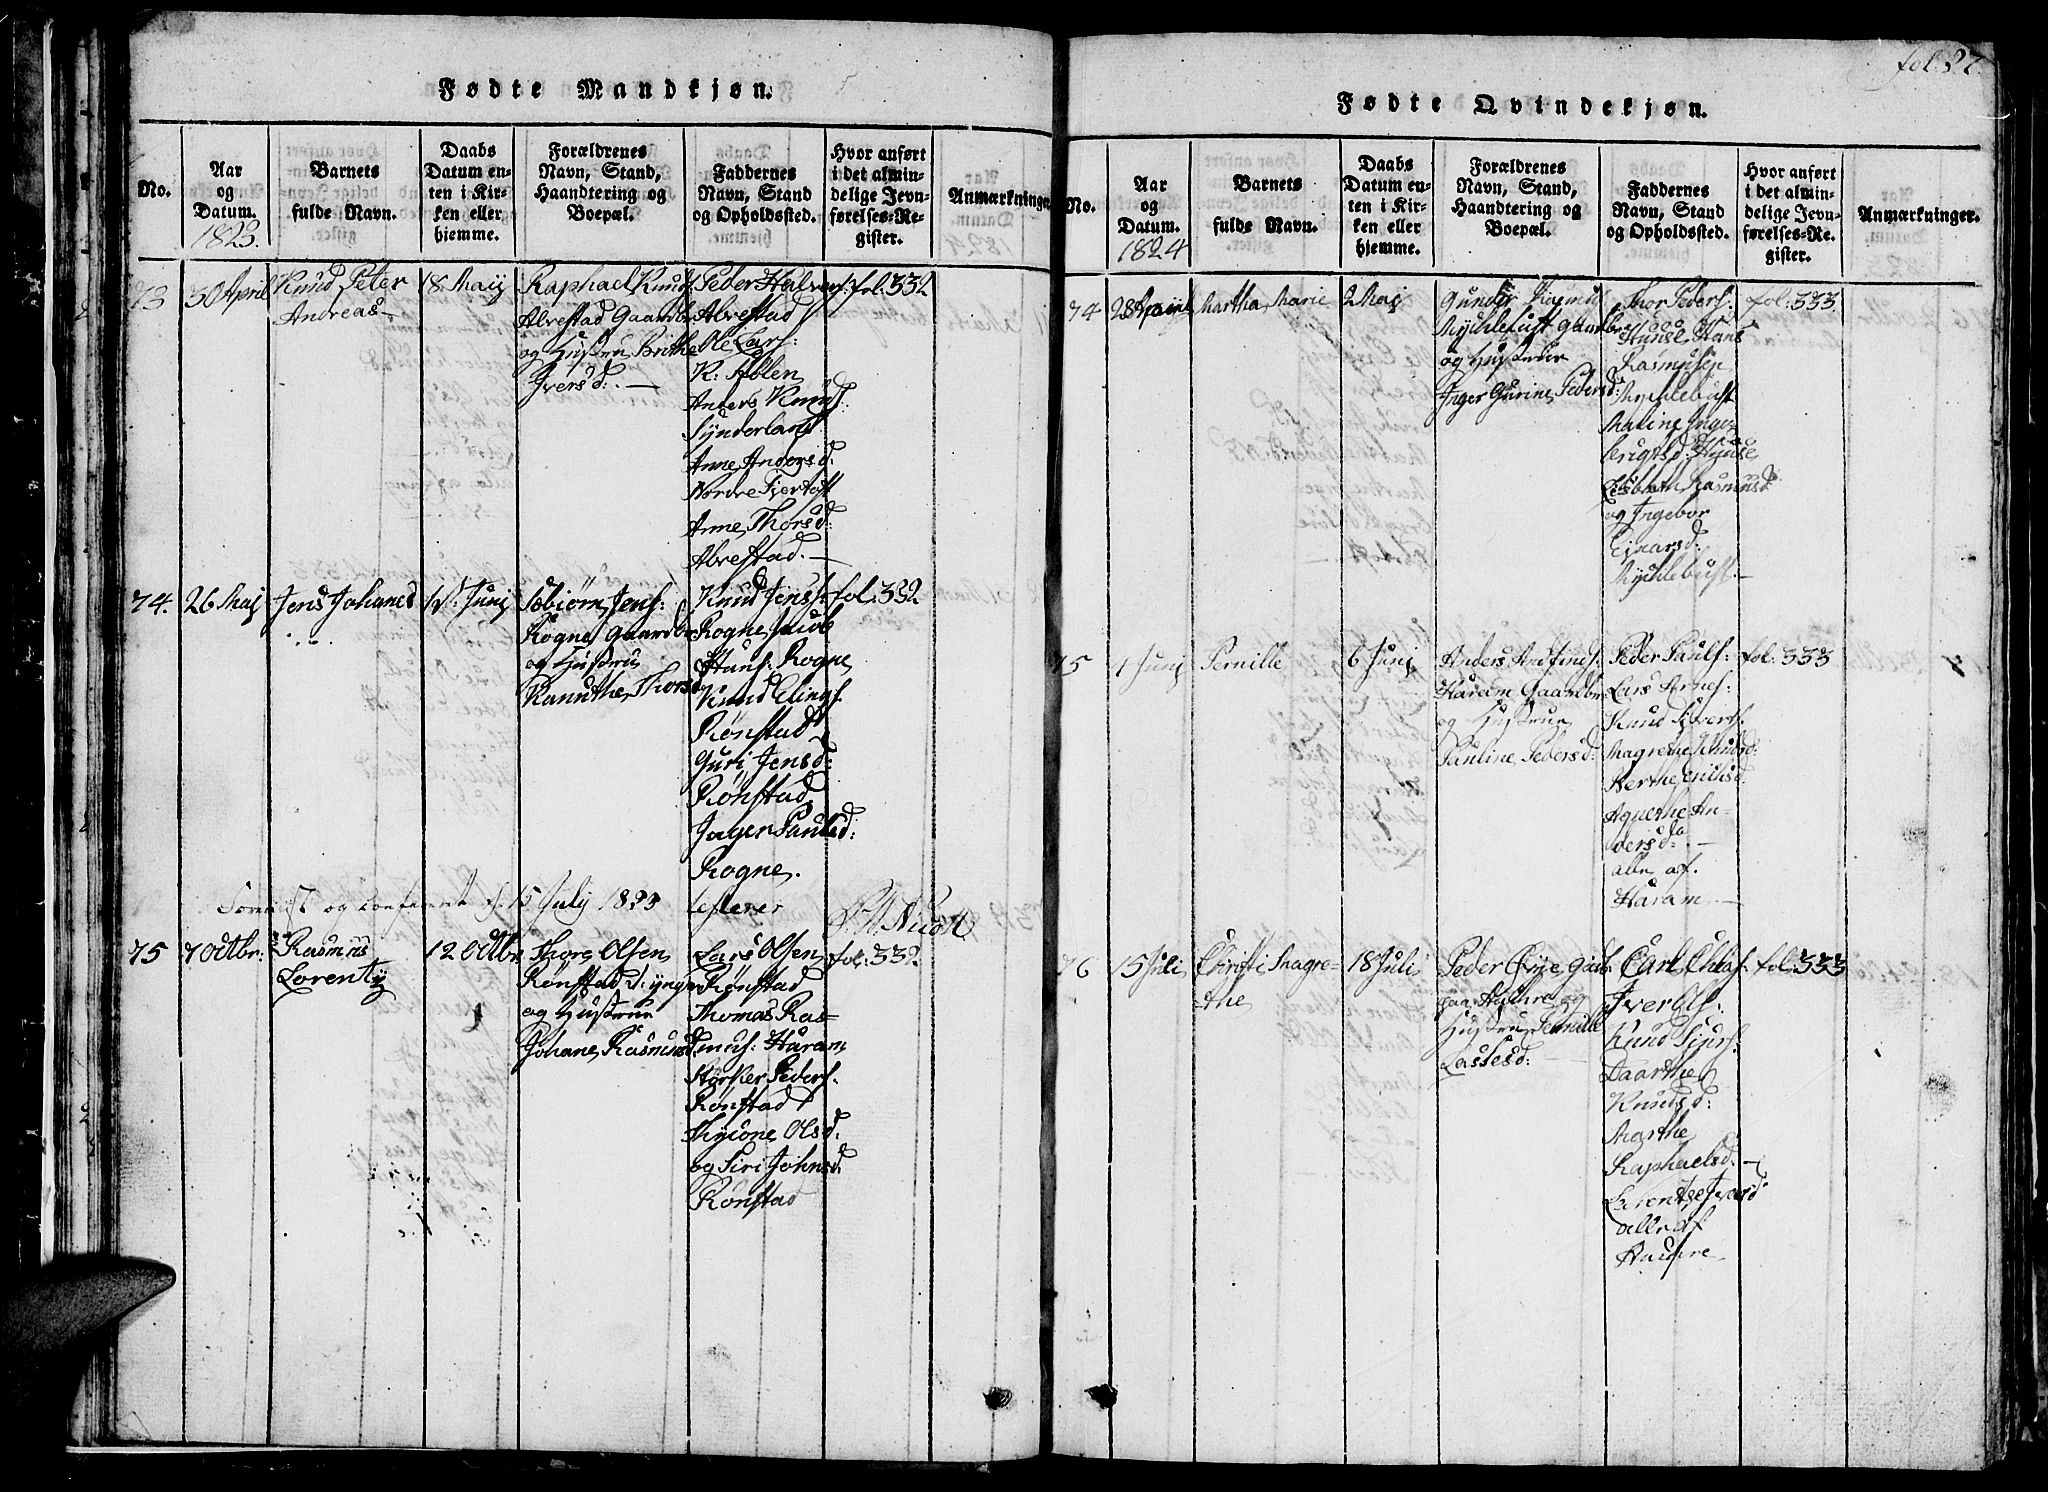 fol. 27.
Fødte Mandkjøn.
No.
Aar og Datum. 1823.
Barnets fulde Navn.
Daabs Datum enten i Kirken eller hjemme.
Forældrenes Navn, Stand, Haandtering og Boepæl.
Faddernes Navn, Stand og Opholdssted.
Hvor anført i det almindelige Jevnførelses-Register.
Anmærkninger
73
30 April
Knud Peter
Andreas
18 Maij
Raphael Knuds:
Alvestad Gaardbr
og Hustru Birthe
Iversd:
Peder Halvors:
Alvestad
Ole Lars:
Anders Knuds:
Synderland
Anne Andersd:
Nordre Fjertoft
Anne Thorsd:
Alvestad.
fol: 332
74.
26 Maj
Jens Johanes
1st: Junj
Jens:
Rogne Gaardbr
og Hustru
Thorsd
Knud Jenss:
Rogne Jacob
Hans: Rogne
Knud Elings:
Rønstad
Guri Jensd:
Rønstad
Inger Paulsd:
Rogne.
fol: 332
og confereret d. 15 July 1823
75
7 Octbr:
Rasmus
Lorentz
12 Octbr
Thore Olsen
Rønstad d: yngre
og Hustrue
Johane Rasmusd.
Lars Olsen
Rønstad
Thomas Ras-
mus: Haram
Størker Peders:
Rønstad
Olsd:
og Siri Johnsd:
Rønstad
fol: 332.
Fødte Qvindekjøn.
No.
Aar og Datum. 1824
Barnets fulde Navn.
Daabs Datum enten i Kirken eller hjemme.
Forældrenes Navn, Stand, Haandtering og Boepæl.
Faddernes Navn, Stand og Opholdssted.
Hvor anført i det almindelige Jevnførelses-Register.
Anmærkninger.
74
28 April
Martha Marie
2 Maj
Gunder Rasmus
Myklebust Gaardbr
og Hustrue
Inger Gurine Pedersd:
Thor Peders:
Hans
Rasmusen
Myklebust
Maline Inge-
brigtsd:
Rasmusd:
og Ingebor
Ejnarsd:
Myklebust.
fol: 333
75
1 Junj
Pernille
6 Junj
Anders Andfinds:
Haram Gaardbr
og Hustrue
Pauline Pedersd:
Peder Pauls:
Lars Arnes:
Knud Sivers:
Magrethe Knudsd:
Berthe
Agnethe An-
dersd:
alle af
Haram
fol: 333
76
15 Juli
Christi Magre-
the
18 Juli
Peder
paa og
Hustru Pernille
Lassesd:
Carl
Iver Ols:
Knud
Daarthe
Knudsd:
Marthe
Raphaelsd:
alle af
fol: 333